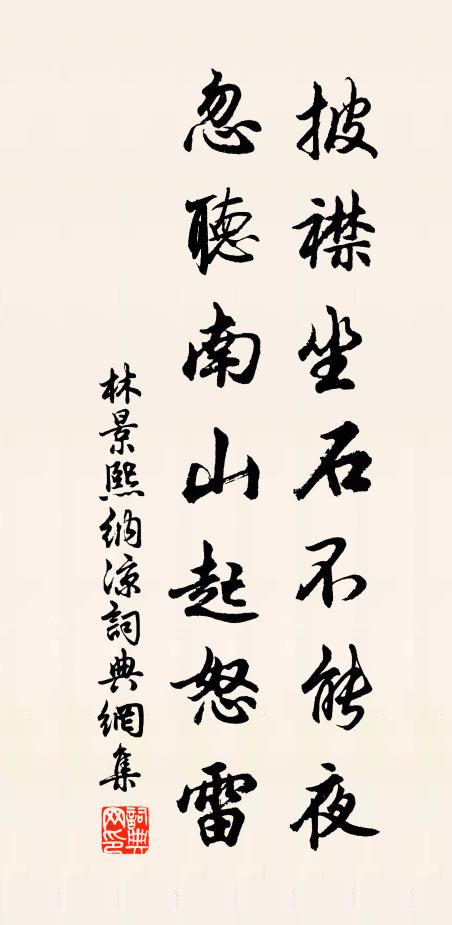 披襟坐石不能夜
忽聽南山起怒雷
林景熙納涼詞典網集
詞典網印